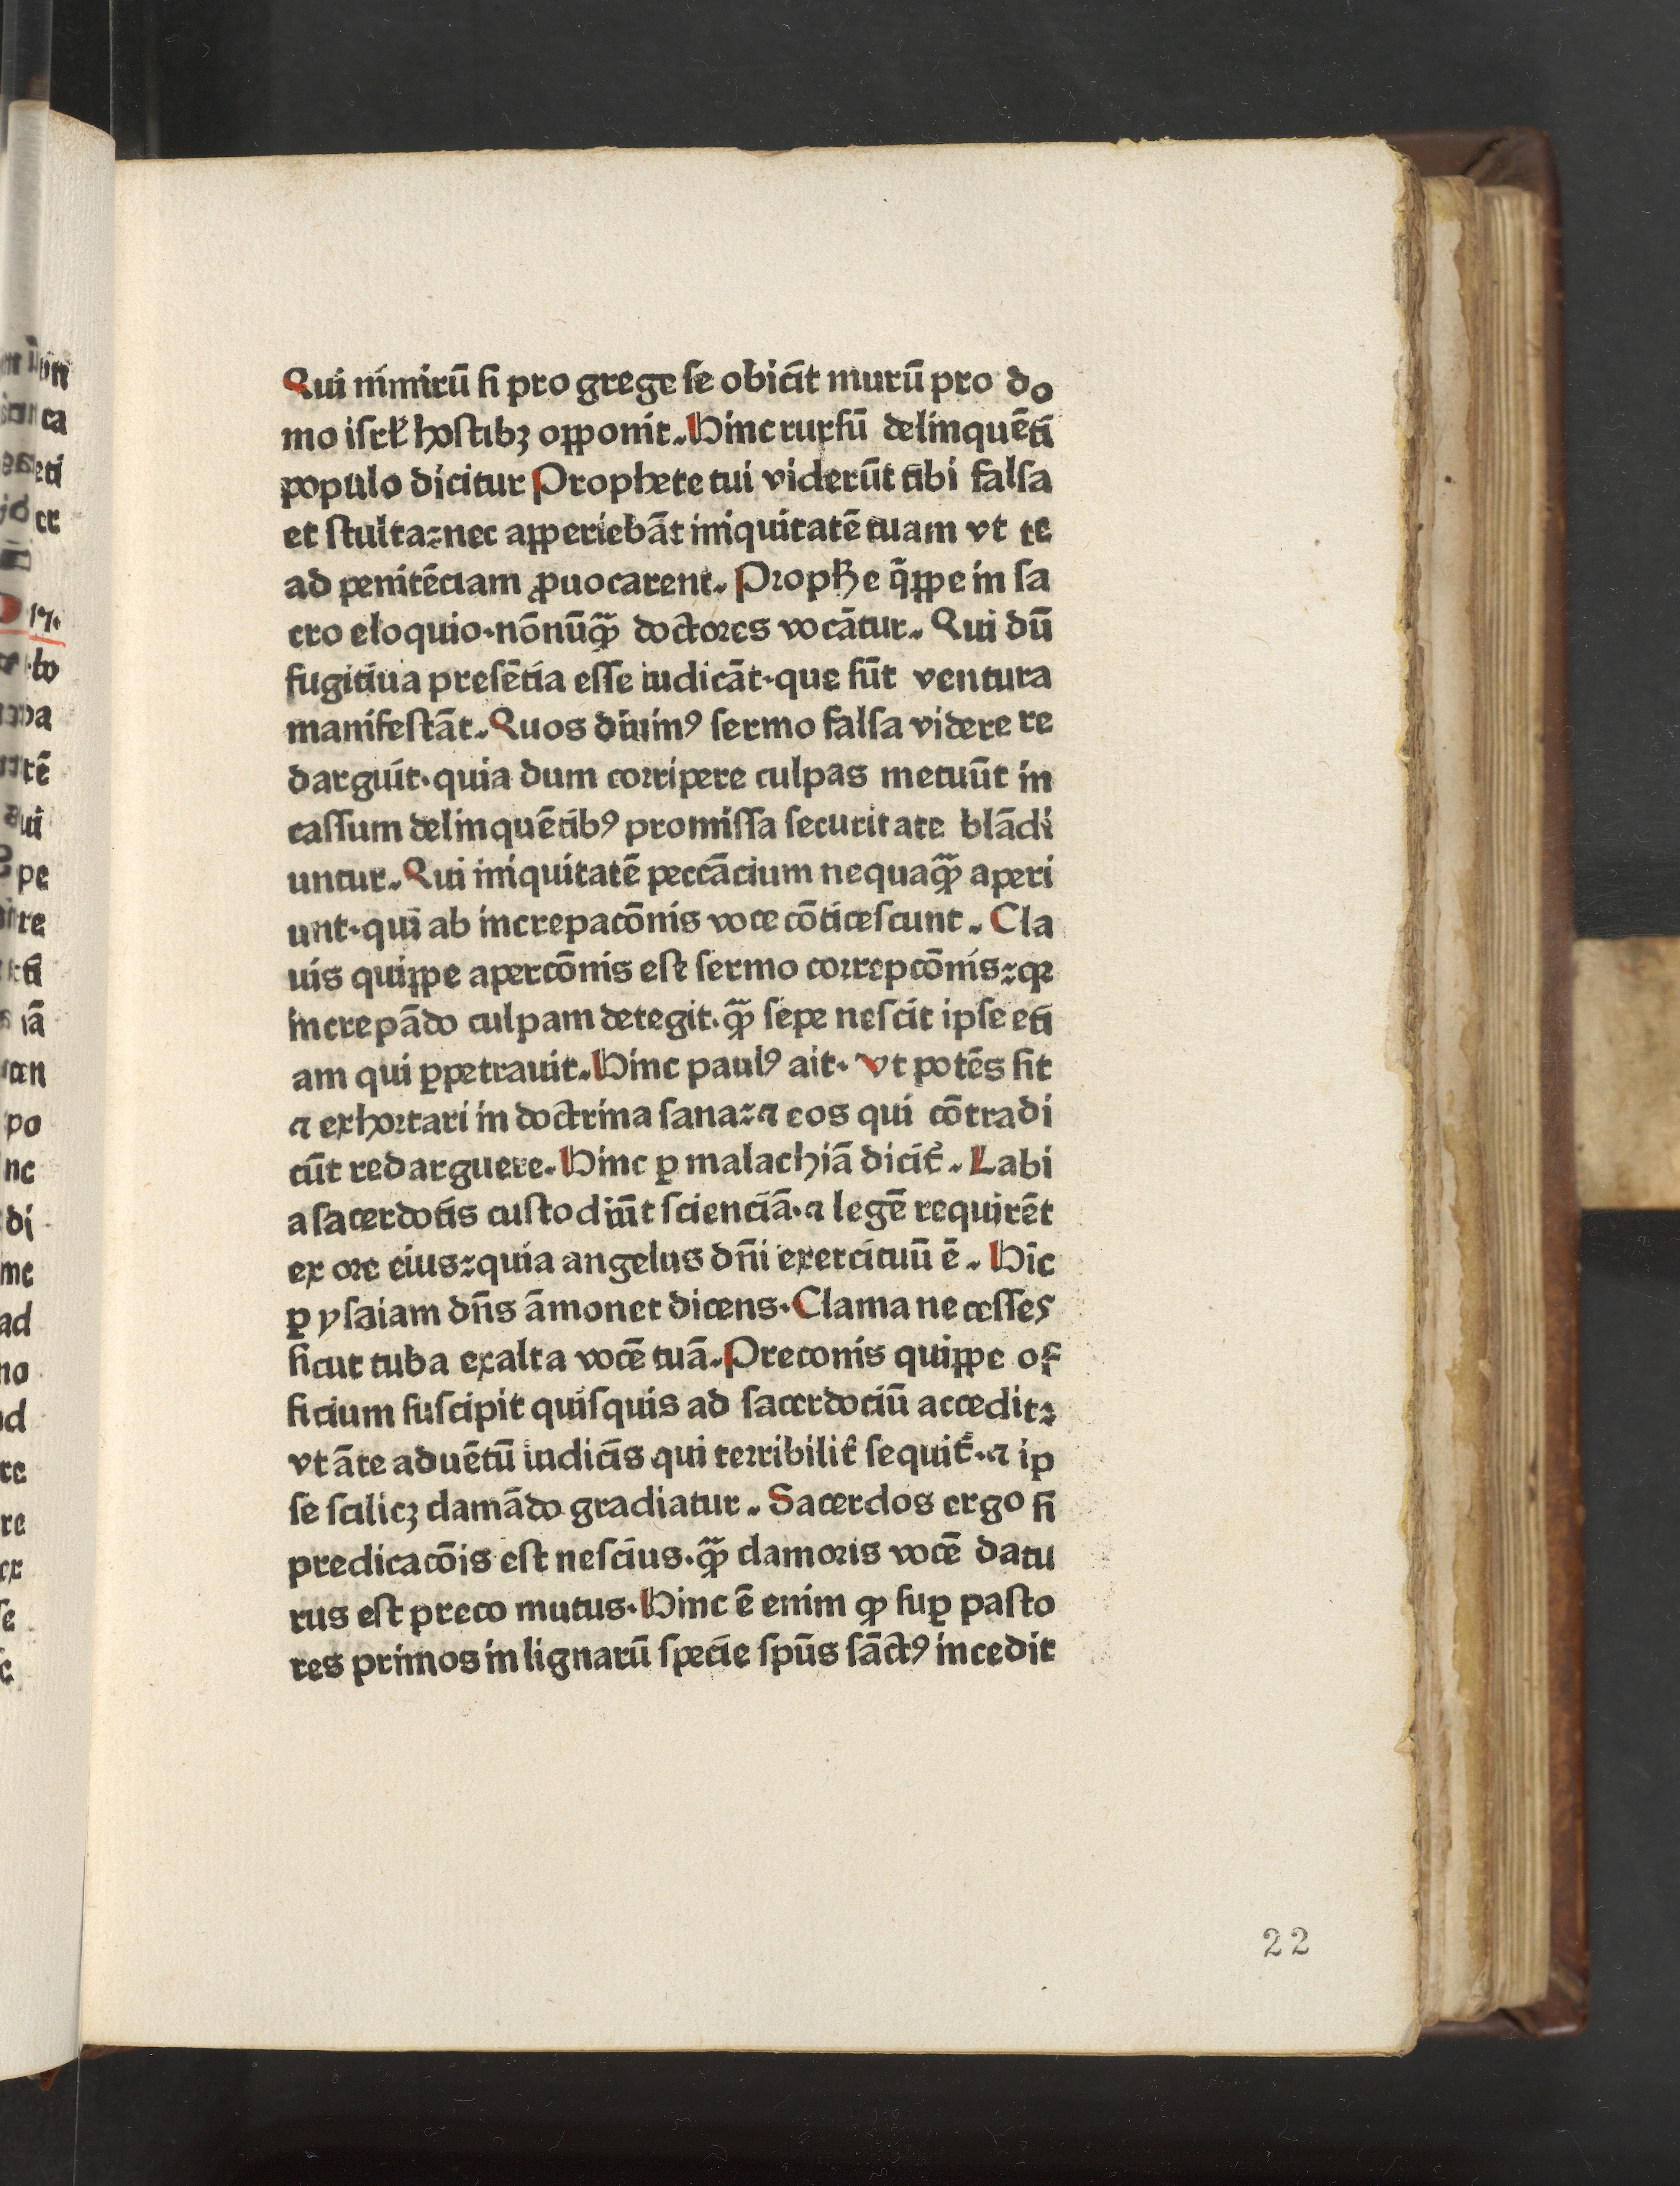 Qui nimirū ſi pro grege ſe obicit murū pro do
mo iſrł hoſtibꝫ opponit. Hinc rurſū delinquēti
populo dicitur Prophete tui viderūt tibi falſa
et ſtulta: nec apperiebāt iniquitatē tuam vt te
ad penitēciam ꝓuocarent. Prophe q̄ppe in ſa
cro eloquio· nōnūꝙ̄ doctores vocātur. Qui dū
fugitiua preſētia eſſe iudicāt· que ſūt ventura
manifeſtāt. Quos diuinꝰ ſermo falſa videre re
darguit· quia dum corripere culpas metuūt in
caſſum delinquētibꝰ promiſſa ſecuritate blādi
untur. Qui iniquitatē peccācium nequaꝙ̄ aperi
unt· qui ab increpacōnis voce cōticeſcunt. Cla
uis quippe apercōnis eſt ſermo correpcōnis: qꝛ
increpādo culpam detegit· ꝙ̄ ſepe neſcit ipſe eti
am qui ꝑpetrauit. Hinc paulꝰ ait· Vt potēs ſit
⁊ exhortari in doctrina ſana: ⁊ eos qui cōtradi
cūt redarguere. Hinc ꝑ malachiā dicit̄. Labi
a ſacerdotis cuſtodiūt ſcienciā· ⁊ legē requirēt
ex ore eius: quia angelus dn̄i exercituū ē. Hīc
ꝑ yſaiam dn̄s āmonet dicens· Clama ne ceſſes
ſicut tuba exalta vocē tuā. Preconis quippe of
ficium ſuſcipit quiſquis ad ſacerdociū accedit:
vt āte aduētū iudicis qui terribilit̄ ſequit̄· ⁊ ip
ſe ſcilicꝫ clamādo gradiatur. Sacerdos ergo ſi
predicacōis eſt neſcius· ꝙ̄ clamoris vocē datu
rus eſt preco mutus· Hinc ē enim ꝙ ſuꝑ paſto
res primos in lignarū ſpecie ſpūs ſāctꝰ incedit
22